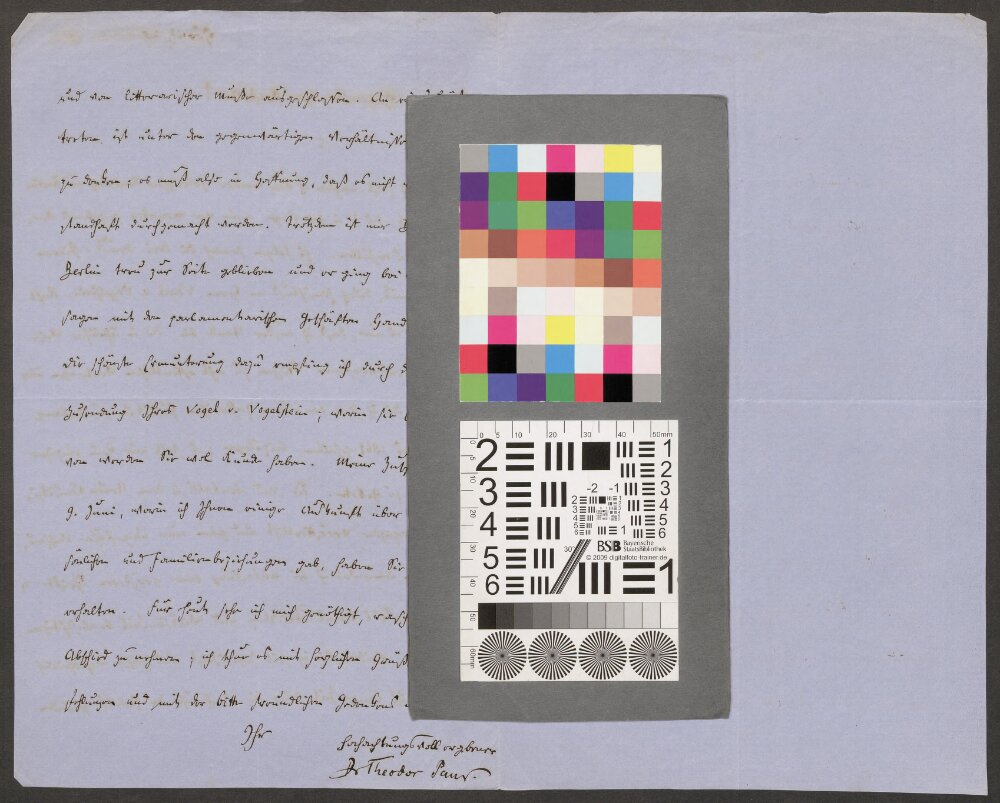 und von litterarischer Muße ausgeschlossen. An
treten ist unter den gegenwärtigen Verhältnisse
zu denken; es muß also in Hoffnung, daß es nicht
standhaft durchgemacht werden. Trotzdem ist mir
Berlin treu zur Seite geblieben und er ging bei
sagen mit den parlamentarischen Geschäften Hand
die schönste Ermunterung dazu empfing ich durch
Zusendung Ihres Vogel v. Vogelstein; worin sie
von werden Sie wol Kunde haben. Meine
9. Juni, worin ich Ihnen einige Auskunft über
sönlichen und Familienbeziehungen gab, haben Sie
erhalten. Für heute sehe ich mich genöthigt, rasch
Abschied zu nehmen; ich thue es mit herzlichen Grüß
fehlungen und mit der Bitte freundlichen Gedenkens
Ihr
hochachtungsvoll ergebener
Dr Theodor Paur.
0 5 10 20 30 40 50mm
0 5 10 20 30 40 50 60mm
2 3 4 5 6
1 2 3 4 5 6
-2 -1
1
1
BSB Bayerische StaatsBibliothek
© 2009 digitalfoto-trainer.de